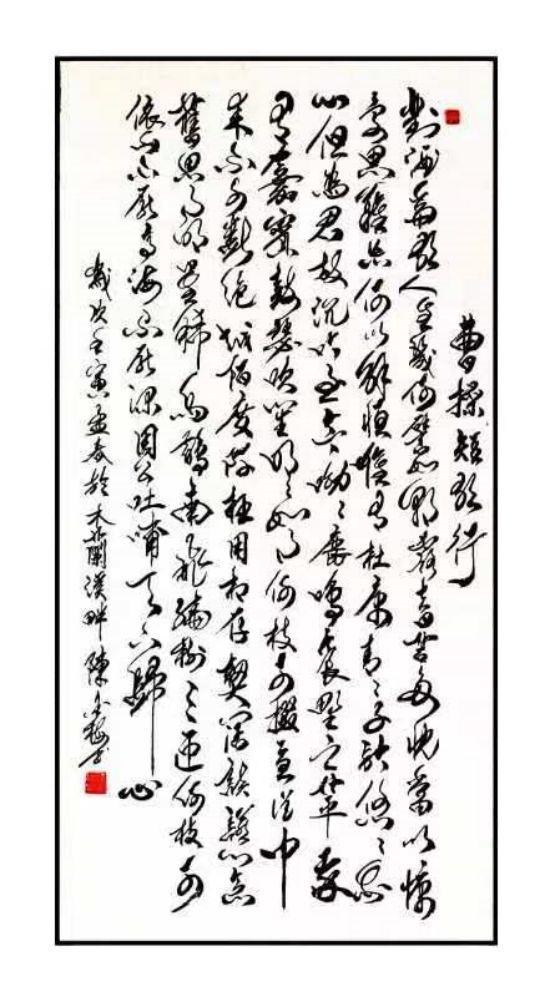 曹操短歌行
對酒當歌人生幾何譬如朝露去日苦多慨當以慷
憂思難忘何以解憂惟有杜康青〻子衿悠〻我
心但為君故沉吟至今呦〻鹿鳴食野之苹我
有嘉賓鼓瑟吹笙明〻如月何時可掇憂從中
來不可斷絕越陌度阡枉用相存契闊談讌心念
舊恩月明星稀烏鵲南飛繞樹三匝何枝可
依山不厭高海不厭深周公吐哺天下歸心
歲次壬寅孟春於木蘭溪畔陳